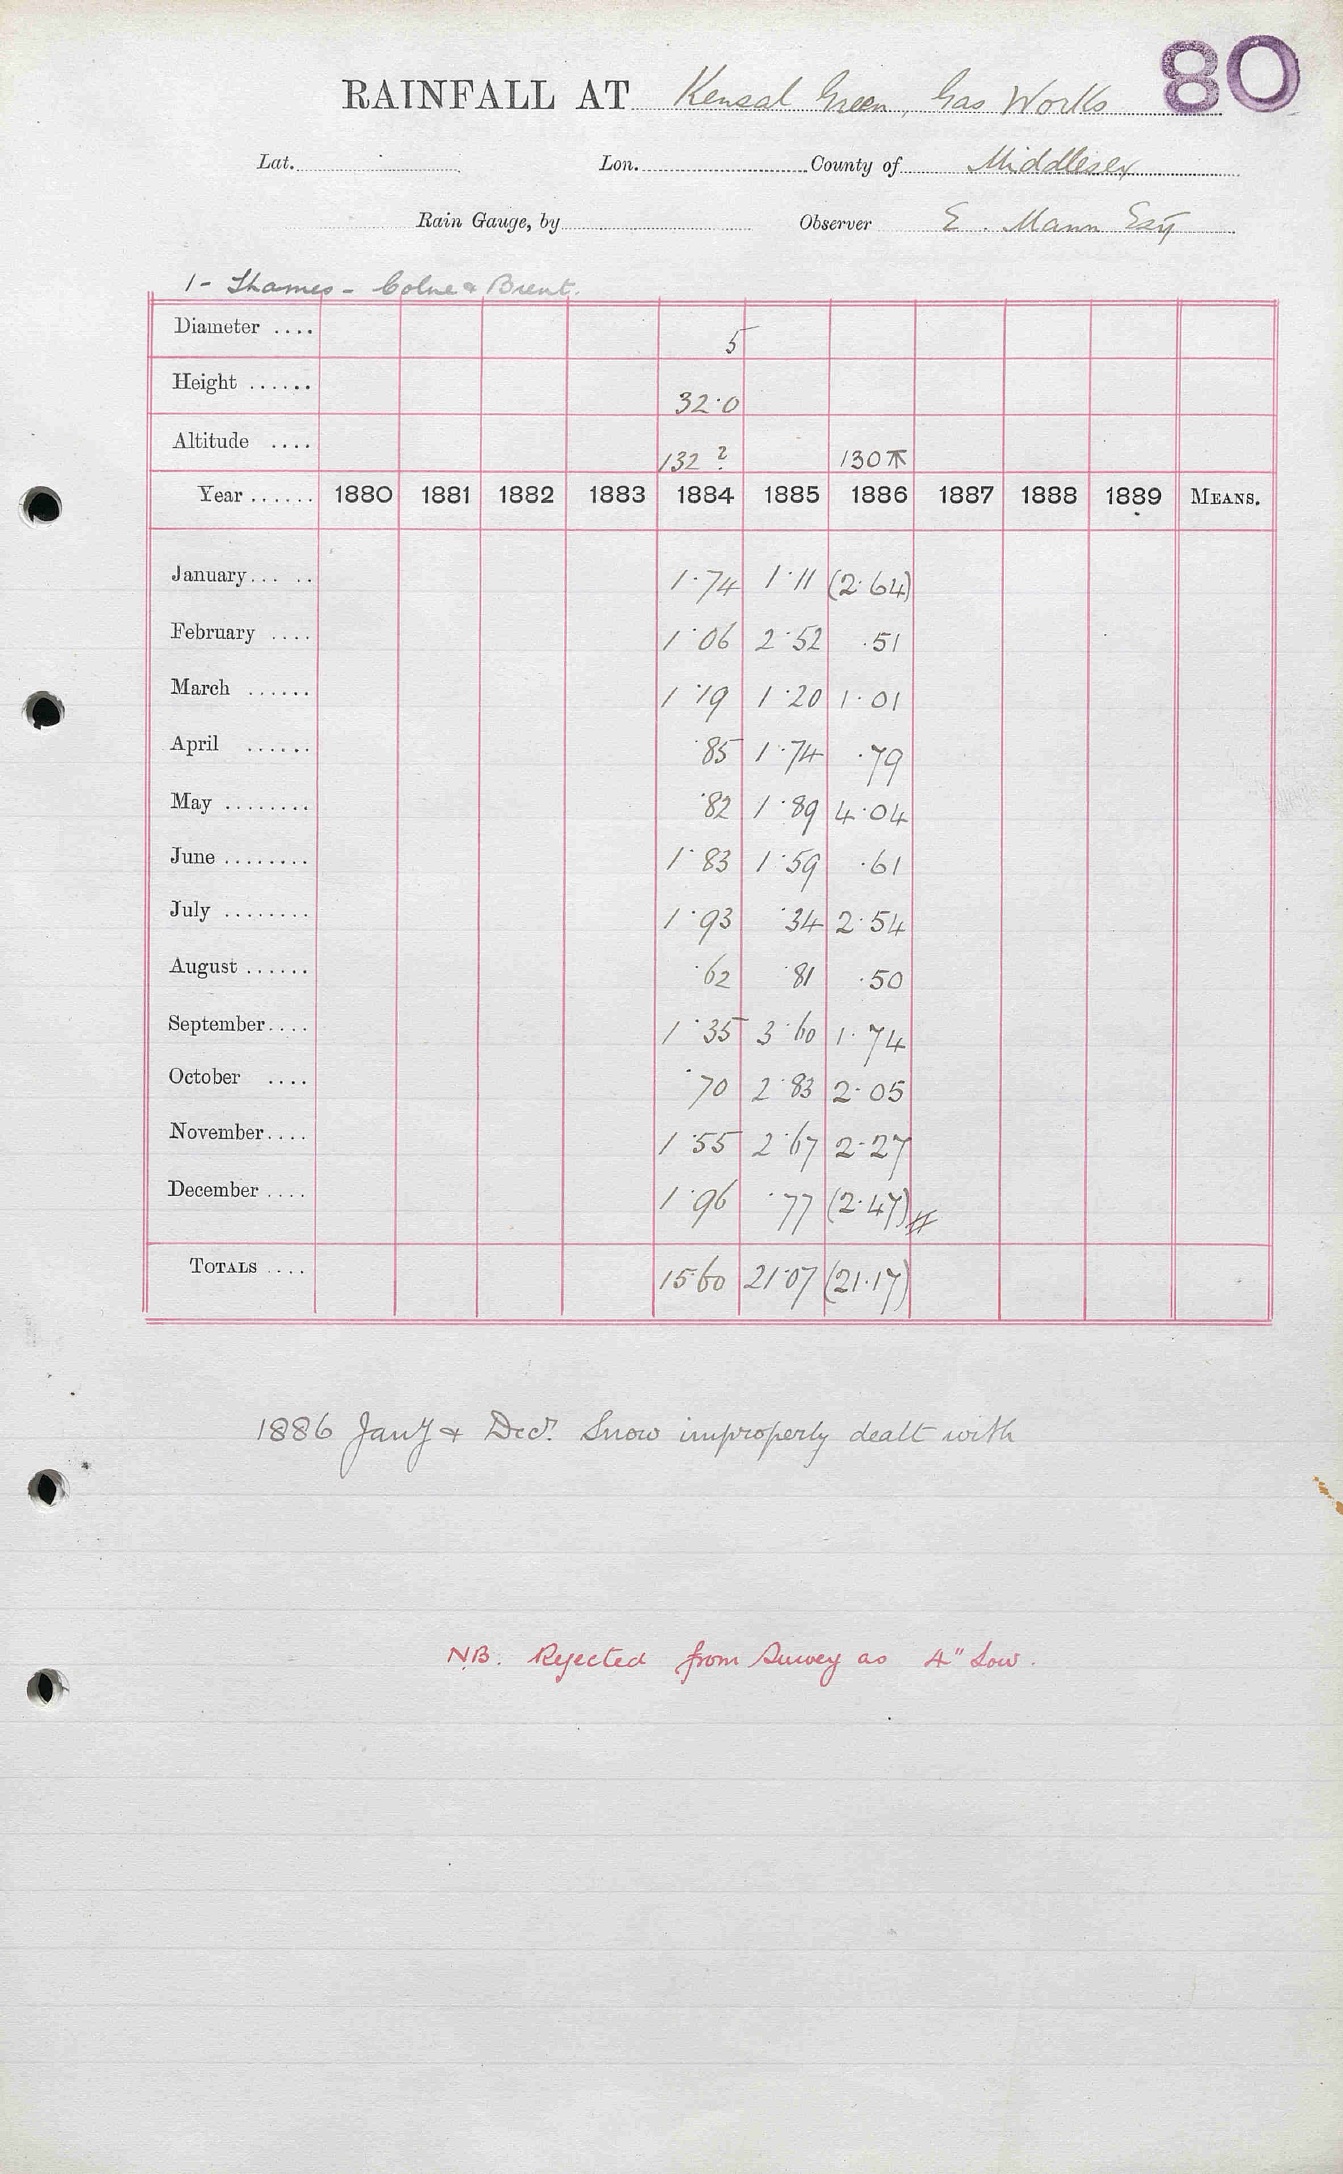 80
RAINFALL AT Kensal Green, Gas Works
Lat. Lon. County of Middlesex
Rain Gauge, by Observer E. Mann Esq
1 - Thames - Colne & Brent.
Diameter .... 5
Height ...... 32·0
Altitude .... 132 ? 130
Year ...... 1880 1881 1882 1883 1884 1885 1886 1887 1888 1889 MEANS.
January... .. 1·74 1·11 (2·64)
February .... 1·06 2·52 ·51
March ...... 1·19 1·20 1·01
April ...... ·85 1·74 ·79
May ........ ·82 1·89 4·04
June ........ 1·83 1·59 ·61
July ........ 1·93 ·34 2·54
August ...... ·62 ·81 ·50
September.... 1·35 3·60 1·74
October .... ·70 2·83 2·05
November.... 1·55 2·67 2·27
December .... 1·96 ·77 (2·47)
TOTALS .... 15·60 21·07 (21·17)
1886 Jany & Decr. Snow improperly dealt with
NB. Rejected from Survey as 4" Low.